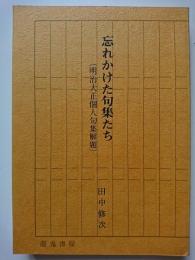 忘れかけた句集たち
〔明治大正個人句集解題〕
田中修次